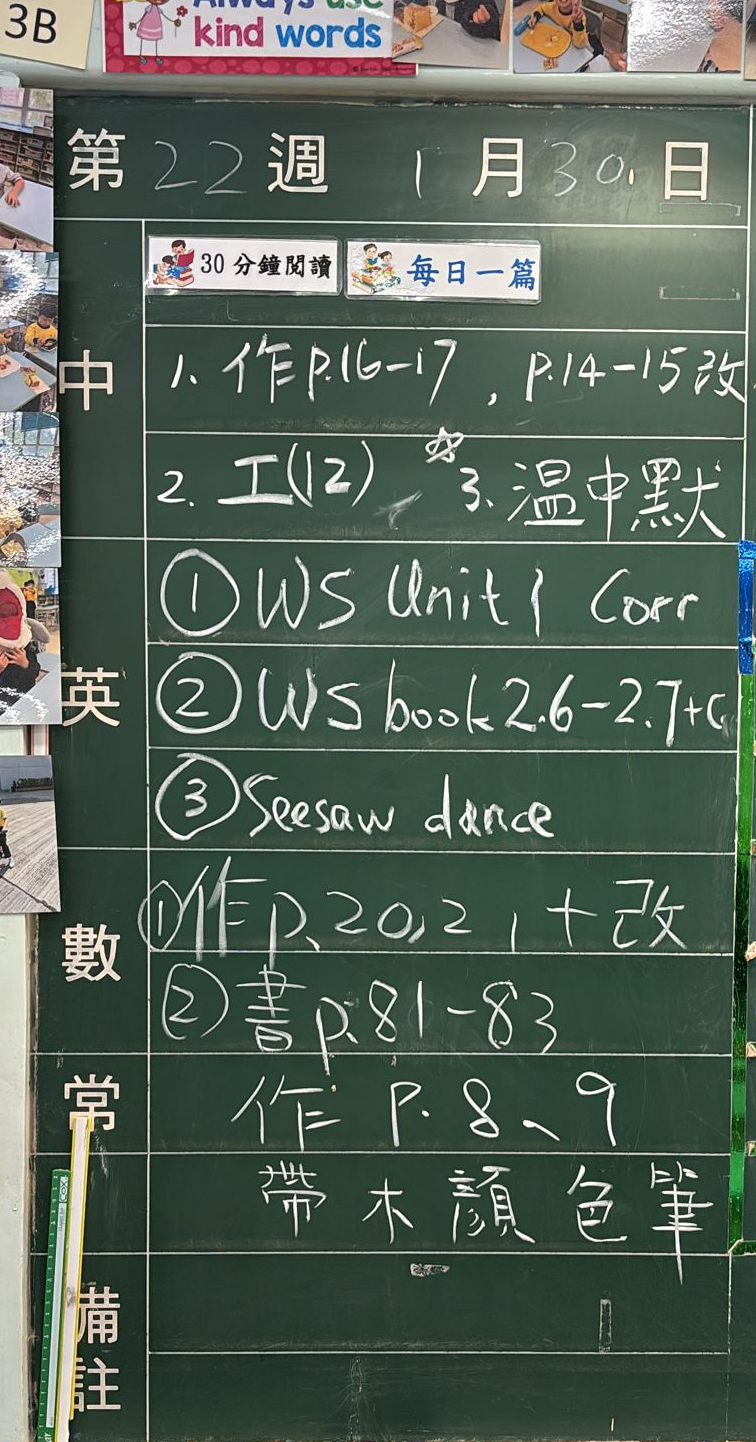 3B
Always use
kind words
第 22 週 1 月 30 日
30 分鐘閱讀 每日一篇
中
1. 作 P.16-17 , P.14-15 改
2. 工(12) ☆3. 温中默
英
① WS Unit 1 Corr
② WS book 2.6-2.7+C
③ Seesaw dance
數
① 作 p. 20, 21 + 改
② 書 p. 81-83
常
作 P. 8、9
帶木顏色筆
備註